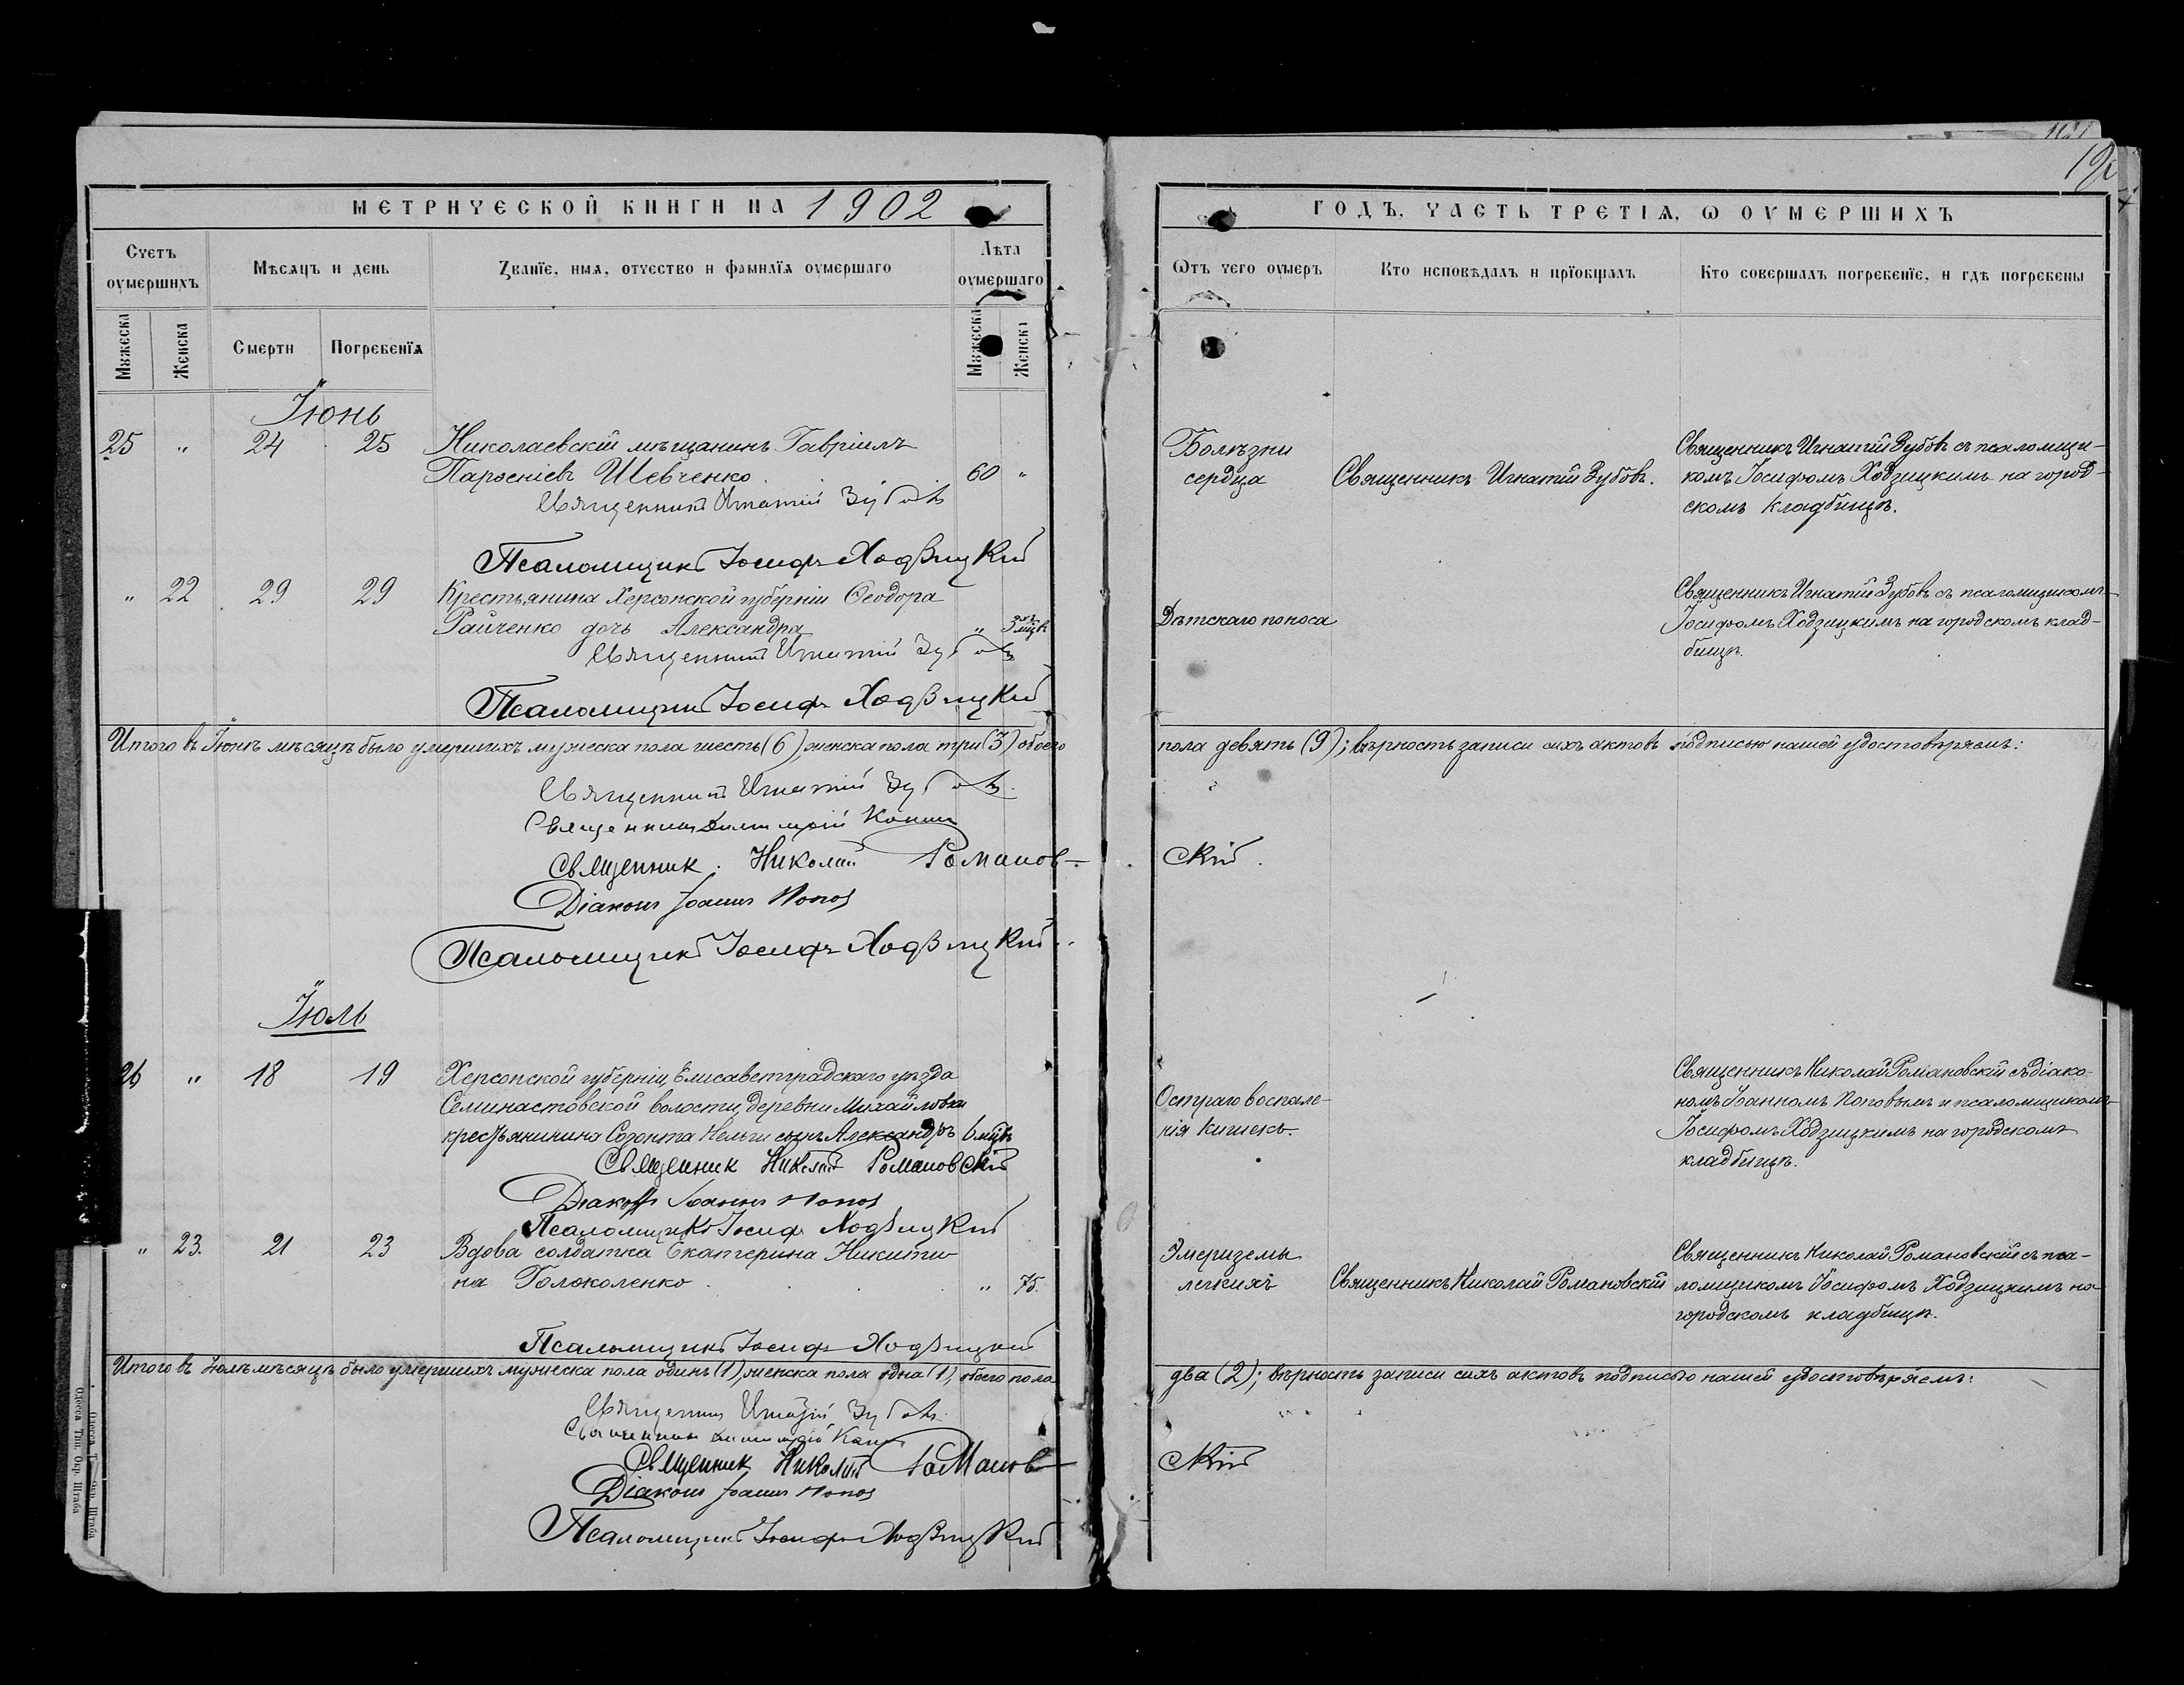 МЕТРИЧЕСКОЙ КНИГИ НА 1902
ГОДЪ, ЧАСТЬ ТРЕТІѦ, Ѡ ОУМЕРШИХЪ
Счетъ оумершихъ
Мѣсяцъ и день
Званїе, имя, отчество и фамилїя оумершаго
Лѣта оумершаго
Ѿтъ чего оумеръ
Кто исповѣдалъ и прїобщалъ
Кто совершалъ погребенїе, и гдѣ погребены
Мꙋжеска
Женска
Смерти
Погребенїя
Мꙋжеска
Женска
Іюнь
25 " 24 25 Николаевскій мѣщанинъ Гавріилъ
Парѳеніевъ Шевченко 60 "
Болѣзни
сердца
Священникъ Игнатій Зубовъ.
Священникъ Игнатій Зубовъ съ псаломщи-
комъ Іосифомъ Ходзицкимъ на город-
скомъ кладбищѣ.
Священникъ Игнатій Зубовъ
Псаломщикъ Іосифъ Ходзицкій
" 22 29 29 Крестьянина Херсонской губерніи Ѳеодора
Райченко дочь Александра " 3 мцъ
Дѣтскаго поноса
Священникъ Игнатій Зубовъ съ псаломщикомъ
Іосифомъ Ходзицкимъ на городскомъ клад-
бищѣ.
Священникъ Игнатій Зубовъ
Псаломщикъ Іосифъ Ходзицкій
Итого въ Іюнѣ мѣсяцѣ было умершихъ мужеска пола шесть (6), женска пола три (3) обоего
пола девять (9); вѣрность записи сихъ актовъ подписью нашей удостовѣряемъ:
Священникъ Игнатій Зубовъ.
Священникъ
Священник. Николай Романов-
скій.
Діаконъ Іоаннъ Попов
Псаломщикъ Іосифъ Ходзицкій
Іюль
26 " 18 19 Херсонской губерніи Елисаветградскаго уѣзда
Семинастовской волости, деревни Михайловки
крестьянина Нельги сынъ Александръ 6 мцв
Остраго воспале-
нія кишекъ.
Священникъ Николай Романовскій съ діако-
номъ Іоанномъ Поповымъ и псаломщикомъ
Іосифомъ Ходзицкимъ на городскомъ
кладбищѣ.
Священник Николай Романовскій
Діаконъ Іоаннъ Попов
Псаломщикъ Іосифъ Ходзицкій
" 23. 21 23 Вдова солдатка Екатерина Никити-
на Голоколенко " 75.
Эмфиземы
легкихъ
Священникъ Николай Романовскій
Священникъ Николай Романовскій съ пса-
ломщикомъ Іосифомъ Ходзицкимъ на
городскомъ кладбищѣ.
Псаломщикъ Іосифъ Ходзицкій
Итого въ Іюлѣ мѣсяцѣ было умершихъ мужеска пола одинъ (1), женска пола одна (1), обоего пола
два (2); вѣрность записи сихъ актовъ подписью нашей удостовѣряемъ:
Священник Игнатій Зубовъ.
Священник
Священник Николай Романов-
скій
Діаконъ Іоаннъ Попов
Псаломщикъ Іосифъ Ходзицкій
Одесса Тип. Окр. Штаба